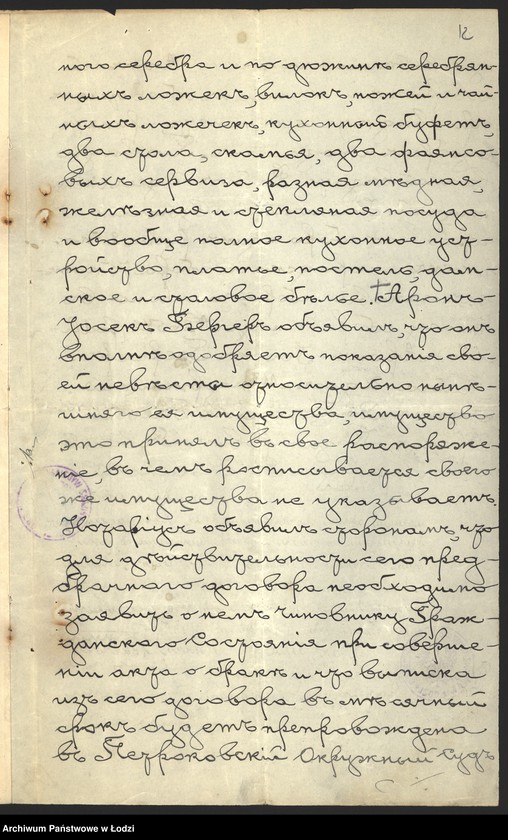 12
ного серебра и по дюжинѣ серебрян-
ныхъ ложекъ, вилокъ, ножей и чай-
ныхъ ложечекъ, кухонный буфетъ,
два стола, скамья, два фаянсо-
выхъ сервиза, разная мѣдная,
желѣзная и стекляная посуда
и вообще полное кухонное уст-
ройство, платье, постель, дам-
ское и столовое бѣлье. Аронъ-
Іосекъ Бергеръ объявилъ, что онъ
вполнѣ одобряетъ показанія сво-
ей невѣсты относительно нынѣ-
шняго ея имущества, имущество
это принялъ въ свое распоряже-
ніе, въ чемъ росписывается своего
же имущества не указываетъ.
Нотаріусъ объявилъ сторонамъ, что
для дѣйствительности сего пред-
брачного договора необходимо
заявить о немъ чиновнику Граж-
данского Состоянія при соверше-
ніи акта о бракѣ и что выписка
изъ сего договора въ мѣсячный
срокъ будетъ препровождена
въ Петроковскій Окружный Судъ
Archiwum Państwowe w Łodzi